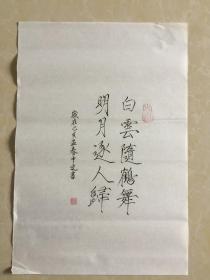 白雲隨鶴舞
明月逐人歸
歲在己亥孟春中建書